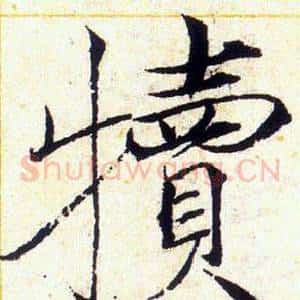 犢
Shufawang.CN